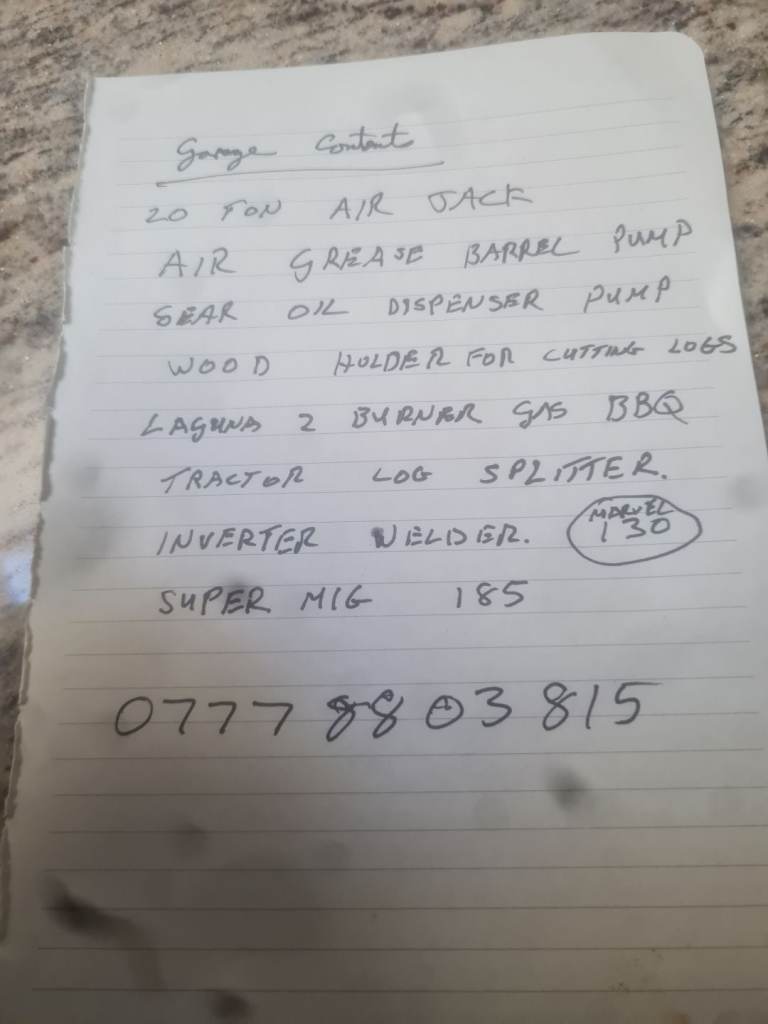 Garage Content
20 TON AIR JACK
AIR GREASE BARREL PUMP
GEAR OIL DISPENSER PUMP
WOOD HOLDER FOR CUTTING LOGS
LAGUNA 2 BURNER GAS BBQ
TRACTOR LOG SPLITTER.
INVERTER WELDER. MARVEL 130
SUPER MIG 185
0777 8803815